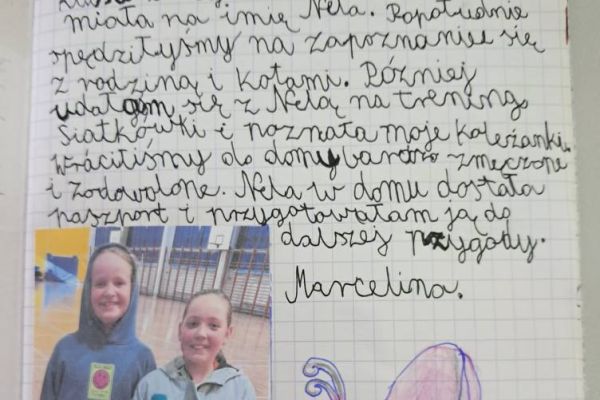 miała na imię Nela. Popołudnie
spędziłyśmy na zapoznaniu się
z rodziną i kotami. Później
udałam się z Nelą na trening
Siatkówki i poznała moje koleżanki.
Wróciliśmy do domu bardzo zmęczone
i zadowolone. Nela w domu dostała
paszport i przygotowałam ją do
dalszej przygody.
Marcelina.